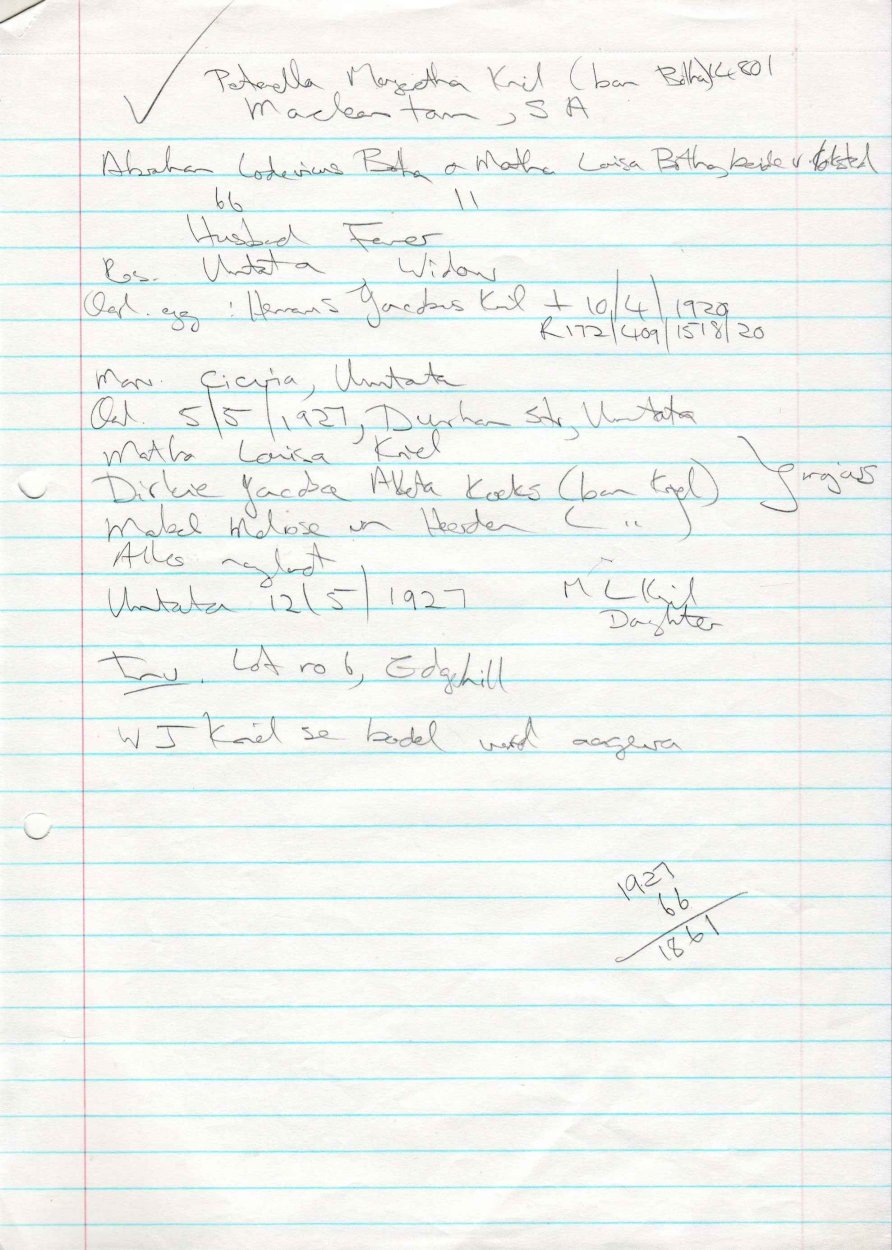 Petronella Margretha Kriel (ban Botha) 14801
Macleantown, SA
Abraham Lodevicus Botha & Martha Louisa Botha, beide v. Kokstad
66 11
Husband Farmer
Res. Umtata, Widow
Oorl. egg: Hermanus Jacobus Kriel + 10/4/1920
R172/409/1518/20
Marr. Cicira, Umtata
Oorl. 5/5/1927, Durham Str, Umtata
Martha Louisa Kriel
Dirkie Jacoba Aleta (ban Kriel)
Mabel van Heerden ( " )
majors
Alles
Umtata 12/5/1927 M L Kriel
Daughter
Inv. Lot no 6, Edgehill
W J Kriel se boedel word
1927
66
1861